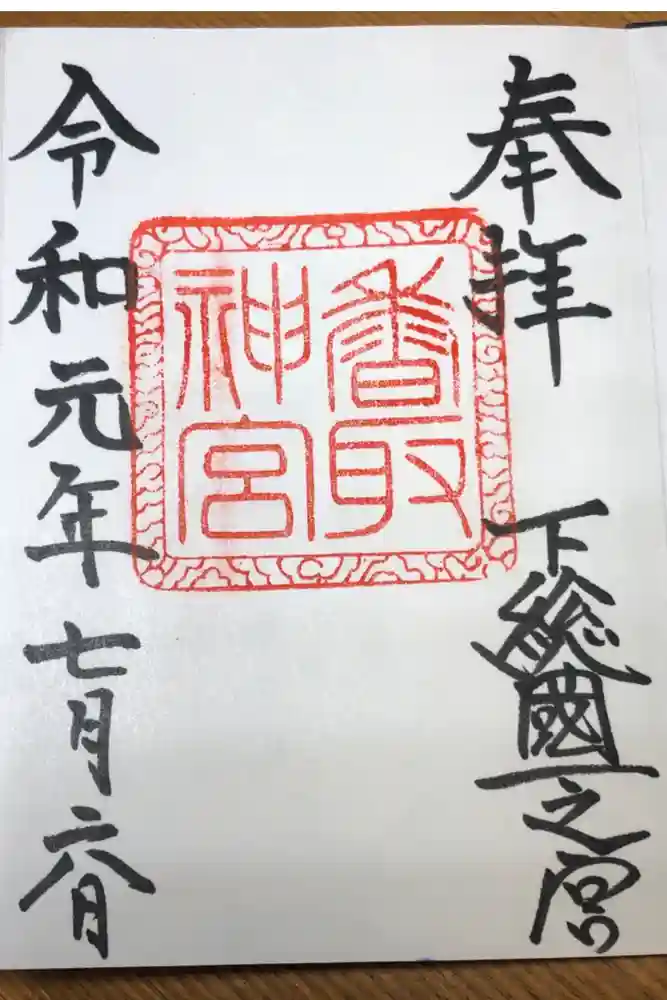 奉拝
下総國一之宮
香取
神宮
令和元年七月六日